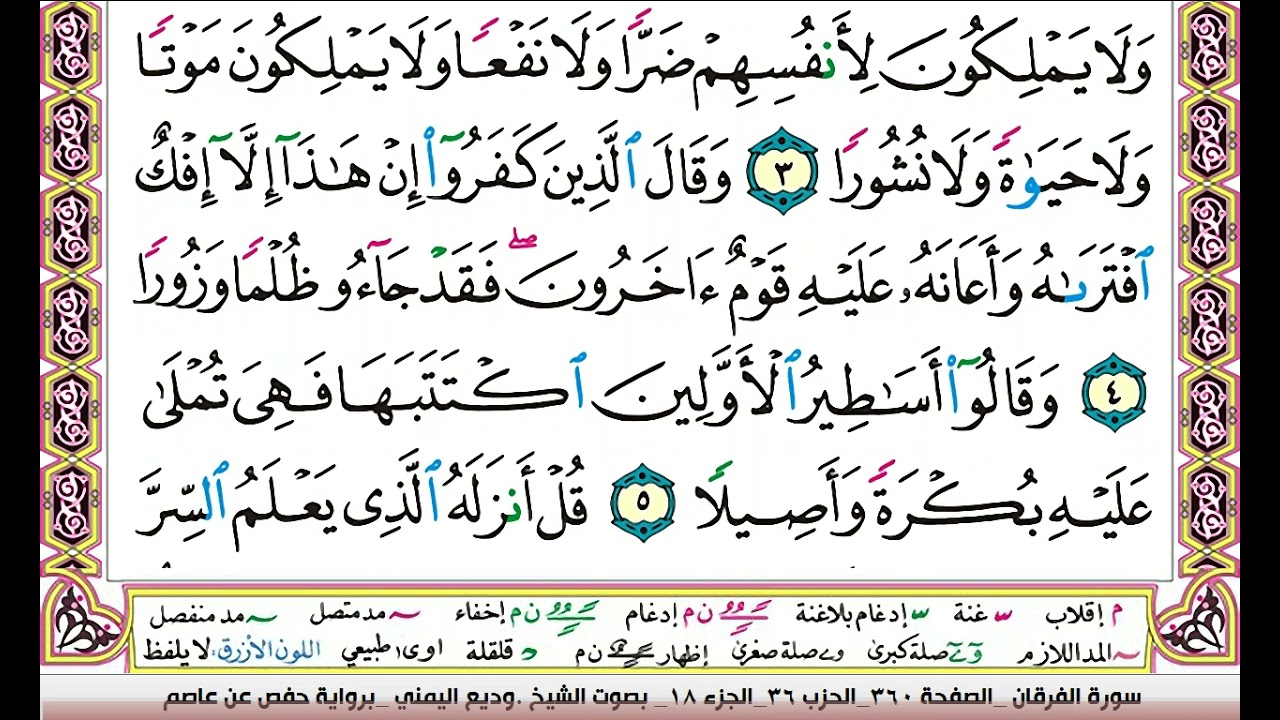 وَلَا يَمْلِكُونَ لِأَنفُسِهِمْ ضَرًّا وَلَا نَفْعًا وَلَا يَمْلِكُونَ مَوْتًا
وَلَا حَيَوٰةً وَلَا نُشُورًا ٣ وَقَالَ ٱلَّذِينَ كَفَرُوٓا۟ إِنْ هَـٰذَآ إِلَّآ إِفْكٌ
ٱفْتَرَىٰهُ وَأَعَانَهُۥ عَلَيْهِ قَوْمٌ ءَاخَرُونَ ۖ فَقَدْ جَآءُو ظُلْمًا وَزُورًا
٤ وَقَالُوٓا۟ أَسَـٰطِيرُ ٱلْأَوَّلِينَ ٱكْتَتَبَهَا فَهِىَ تُمْلَىٰ
عَلَيْهِ بُكْرَةً وَأَصِيلًا ٥ قُلْ أَنزَلَهُ ٱلَّذِى يَعْلَمُ ٱلسِّرَّ
م إقلاب غنة إدغام بلاغنة ن م إدغام ن م إخفاء مد متصل مد منفصل
المد اللازم صلة كبرى وے صلة صغرى إظهار ن م قلقلة اوى طبيعي اللون الأزرق لا يلفظ
سورة الفرقان _الصفحة ٣٦٠_الحزب ٣٦_الجزء ١٨_ بصوت الشيخ .وديع اليمني _برواية حفص عن عاصم